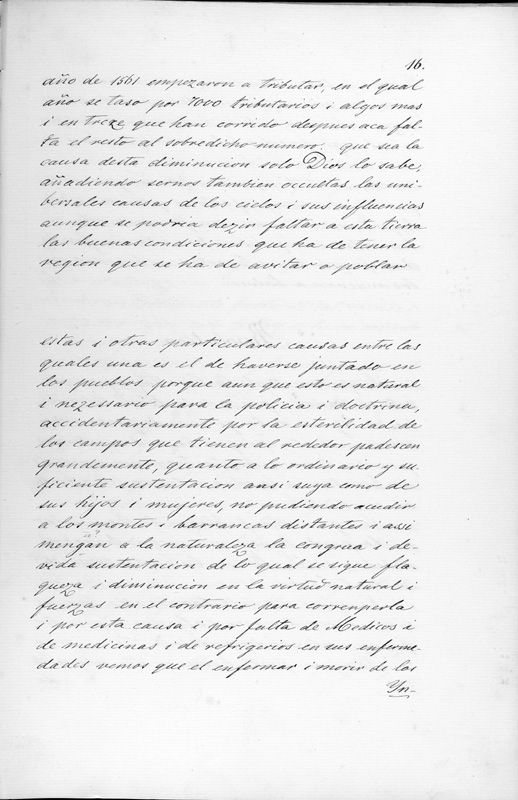 16.
año de 1561 empezaron a tributar, en el qual
año se taso por 7000 tributarios i algos mas
i en treze que han corrido despues aca fal-
ta el resto al sobredicho numero. que sea la
causa desta diminucion solo Dios lo sabe,
añadiendo sernos tambien ocultas las uni-
bersales causas de los cielos i sus influencias
aunque se podria dezir faltar a esta tierra
las buenas condiciones que ha de tener la
region que se ha de avitar o poblar
estas i otras particulares causas entre las
quales una es el de haverse juntado en
los pueblos porque aun que esto es natural
i nezessario para la policia i doctrina,
accidentariamente por la esterilidad de
los campos que tienen al rededor padescen
grandemente, quanto a lo ordinario y su-
ficiente sustentacion ansi suya como de
sus hijos i mujeres, no pudiendo acudir
a los montes i barrancas distantes i assi
mengan a la naturaleza la congrua i de-
vida sustentacion de lo qual se sigue fla-
queza i diminucion en la virtud natural i
fuerzas en el contrario para correnperla
i por esta causa i por falta de Medicos i
de medicinas i de refrigerios en sus enferme-
dades vemos que el enfermar i morir de los
Yn-